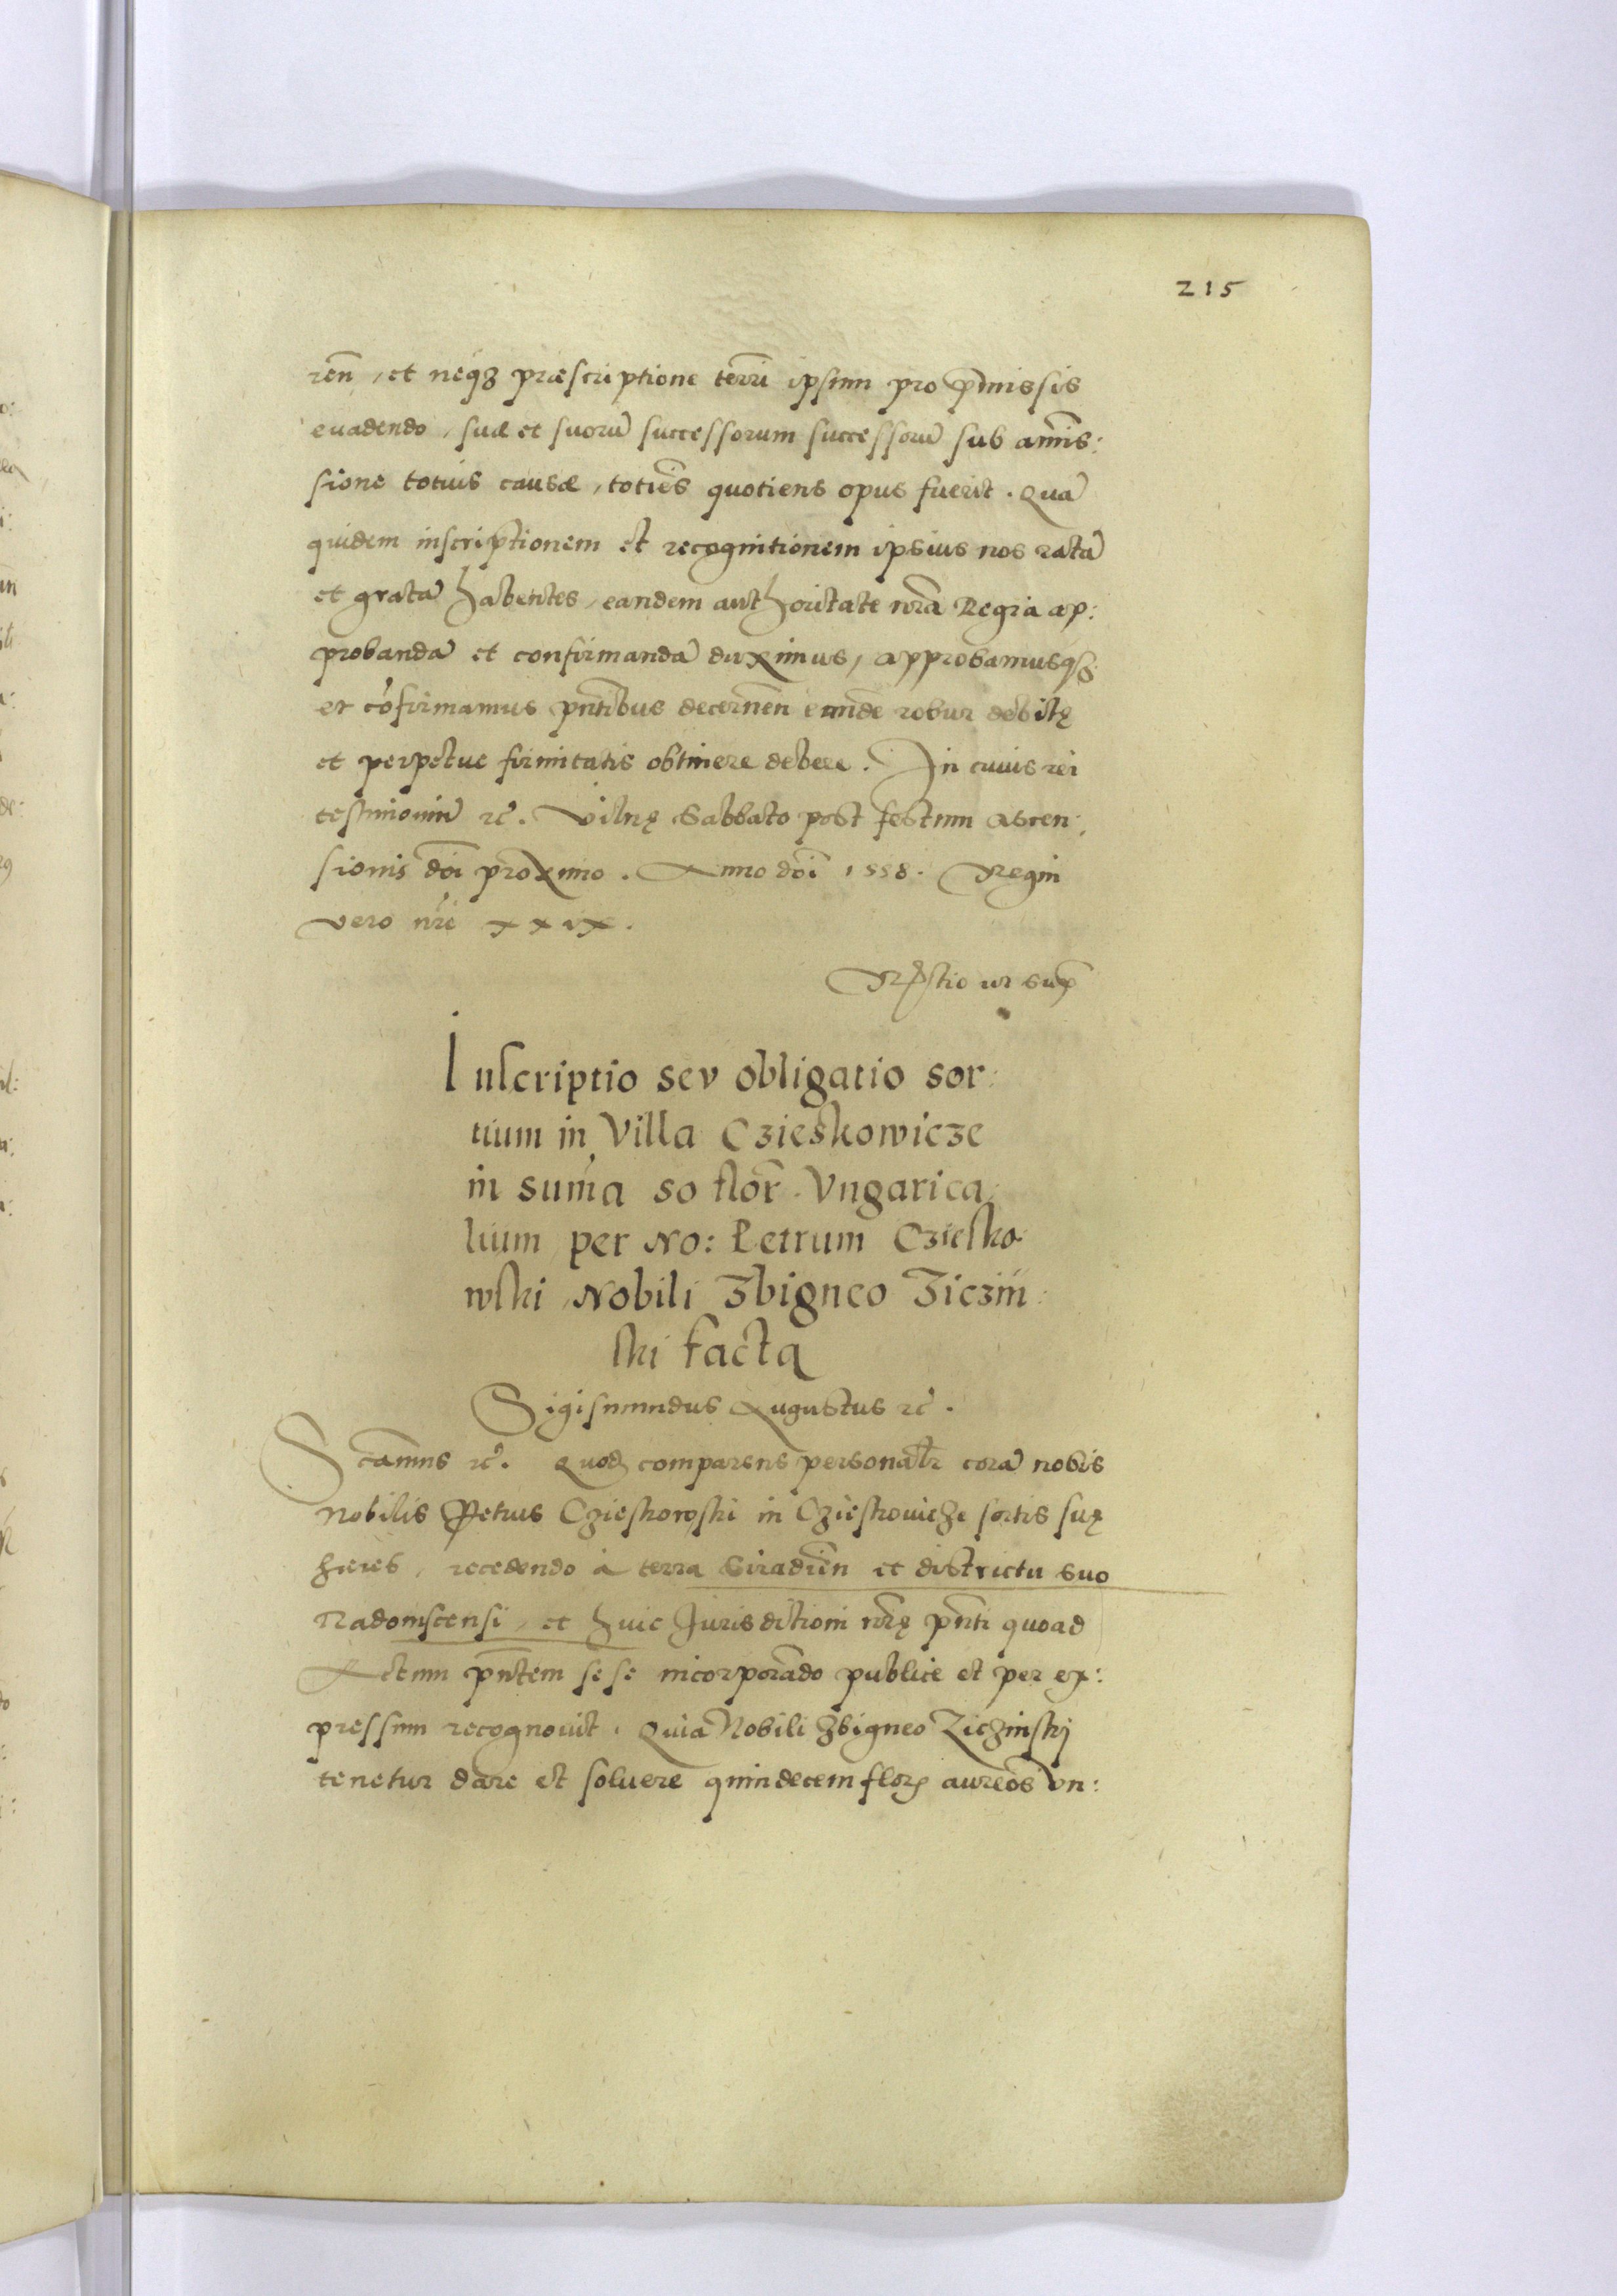 215
reñ, et neqꝫ præscriptione terrī ipsum pro p̄missis
euadendo, suæ et suorū successorum successorū sub amis:
sione totius causæ, totiēs quotiens opus fuerit. Quā
quidem inscriptionem et recognitionem ipsius nos ratā
et gratā habentes, eandem authoritate nr̄a Regia ap:
probandā et confirmandā duximus, approbamusqꝫ
et cōfirmamus pn̄tibus decernēn eandē robur debitę
et perpetue firmitatis obtinere debere. In cuius rei
testimoniū rc̄. Vilnę Sabbato post festum Ascen:
sionis dn̄i proximo. Anno dn̄i 1558. Regni
vero nr̄i xxix.
ut sup̄
Inscriptio sev obligatio sor:
tium in Villa Czieskowicze
in sum̄a 50 flor̄. Vngarica:
lium per No: Petrum Cziesko:
wski Nobili Zbigneo Ziczin:
ski facta
Sigismundus Augustus rc̄.
S cāmus rc̄. Quod comparens personalr̄ corā nobis
Nobilis Petrus Czieskowski in Czieskouicze sortis suę
hæres, recedendo à terra Siradień et districtu suo
Radomscensi, et huic Jurisditioni nr̄ę pn̄ti quoad
Actum pn̄tem sese incorporādo publice et per ex:
pressum recognouit. Quia Nobili Zbigneo Ziczinskj
tenetur dare et soluere quindecem flor̄ aureos vn: